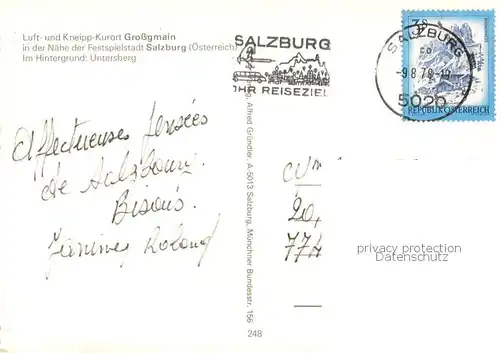 Luft- und Kneipp-Kurort Großgmain
in der Nähe der Festspielstadt Salzburg (Österreich)
Im Hintergrund: Untersberg
SALZBURG
IHR REISEZIEL
SALZBURG
5020
REPUBLIK ÖSTERREICH
Affectueuses pensées
de Salzbourg.
Bisous.
Janine, Roland
Alfred Gründler, A-5013 Salzburg, Münchner Bundesstr. 156
248
20,
774
privacy protection
Datenschutz